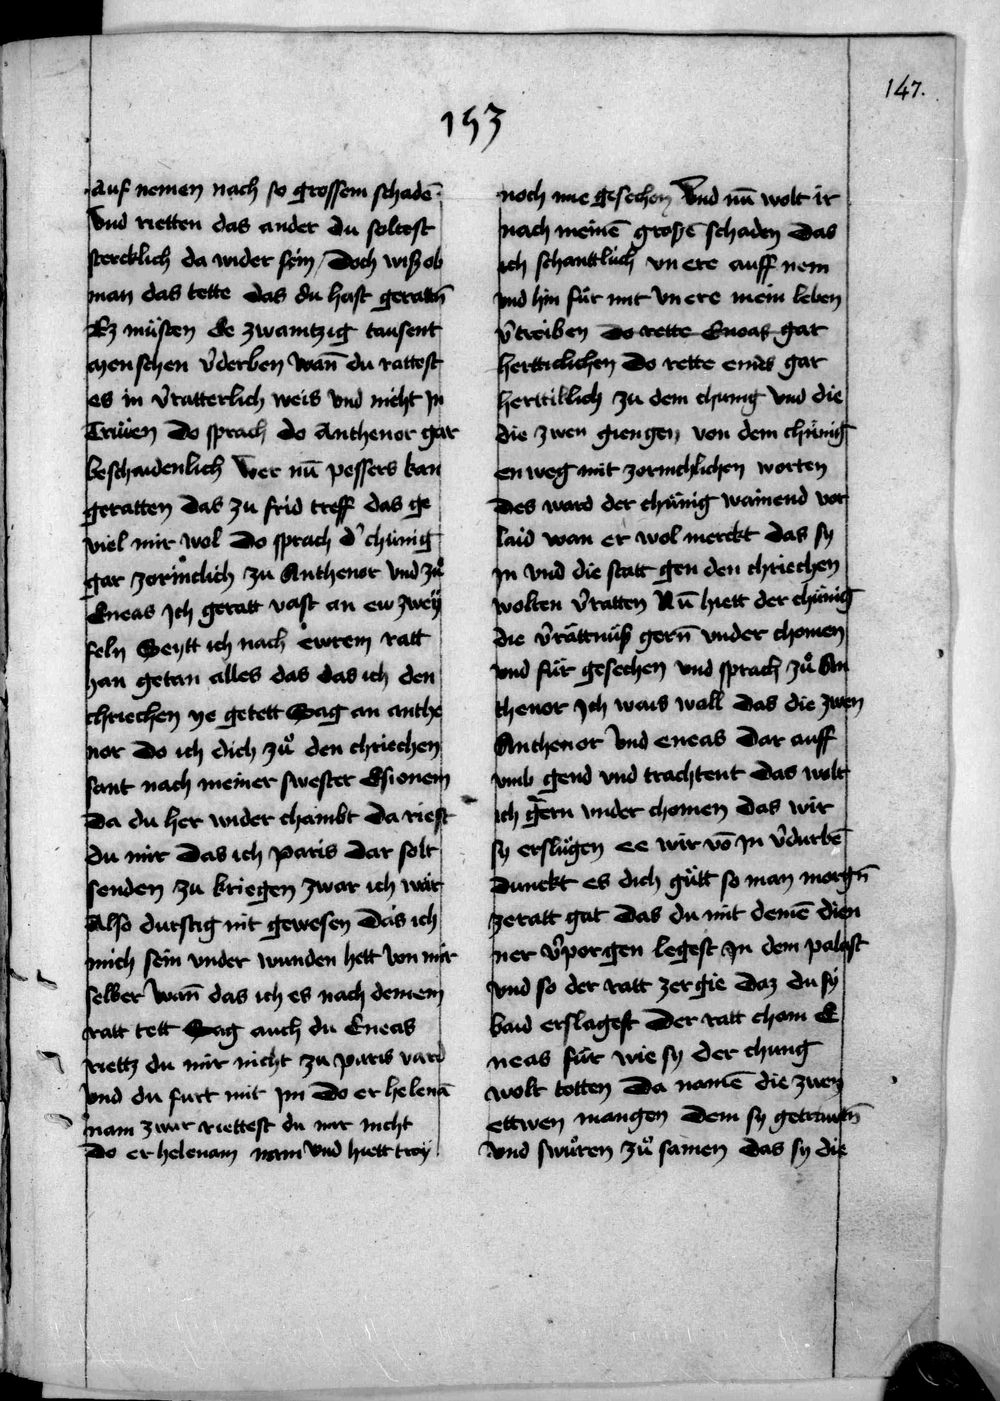 147.
153
auf nemen nach so grossem schadē
Vnd rietten das ander du soltest
stercklich da wider sein / Doch wiß ob
man das tette das du hast geratn̄
Ez müsten de zwaintzig tausent
menschen v̉derben wan̄ du rattest
es in v̉ratterlich weis vnd nicht jn
Trüwen Do sprach do Anthenor gar
beschaidenlich Wer nū pessers kan
geratten das zu frid treff das ge
viel mir wol Do sprach d̉ chünig
gar zorincklich zu Anthenor vnd zů
Eneas Jch geratt vast an ew zwey
feln Seytt ich nach ewrem ratt
han getan alles das das ich den
chriechen ye getett Sag an anthe
nor Do ich dich zů den chriechen
sant nach meiner swester Esionem
Da du her wider chambt da riest
du mir Das ich paris Dar solt
senden zu kriegen zwar ich wär
Also durstig nit gewesen Das ich
mich sein vnder wunden hett von mir
selber wan̄ das ich es nach deinem
ratt tett Sag auch du Eneas
riettz du mir nicht zu paris vard
vnd du furt mit jm Do er helenā
nam zwar riettest du mir nicht
Do er helenam nam vnd hiett troy
noch nie gesechen Vnd nū wolt ir
nach meinē grossē schaden Das
ich schanttlich vn ere auff nem
vnd hin für mit vn ere mein leben
v̉treiben Do rette Eneas gar
herttiklichen Do rette eneas gar
herttiklich zu dem chunig vnd die
die zwen giengen von dem chünig
en weg mit zornichlichen worten
Des ward der chünig wainend vor
laid wan er wol merckt das sy
jn vnd die statt gen den chriechen
wolten v̉ratten Nū hiett der chünig
die v̉rättnüß gern̄ vnder chomen
vnd für gesechen vnd sprach zů An
thenor Jch wais woll das die zwen
Anthenor vnd eneas Dar auff
vmb gend vnd trachtent das wolt
ich gern vnder chomen das wir
sy erslügen ee wir vō jn v̉durbē
Dunckt es dich gütt so man morgn̄
ze ratt gat das du mit deinē dien
ner v̉porgen legest jn dem palast
vnd so der ratt zer gie daz du sy
baid erslagest Der ratt chom E
neas für wie sy der chung
wolt totten Da namē die zwen
ettwen mangen Dem sy getrawtn̄
vnd swůren zů samen das sy die